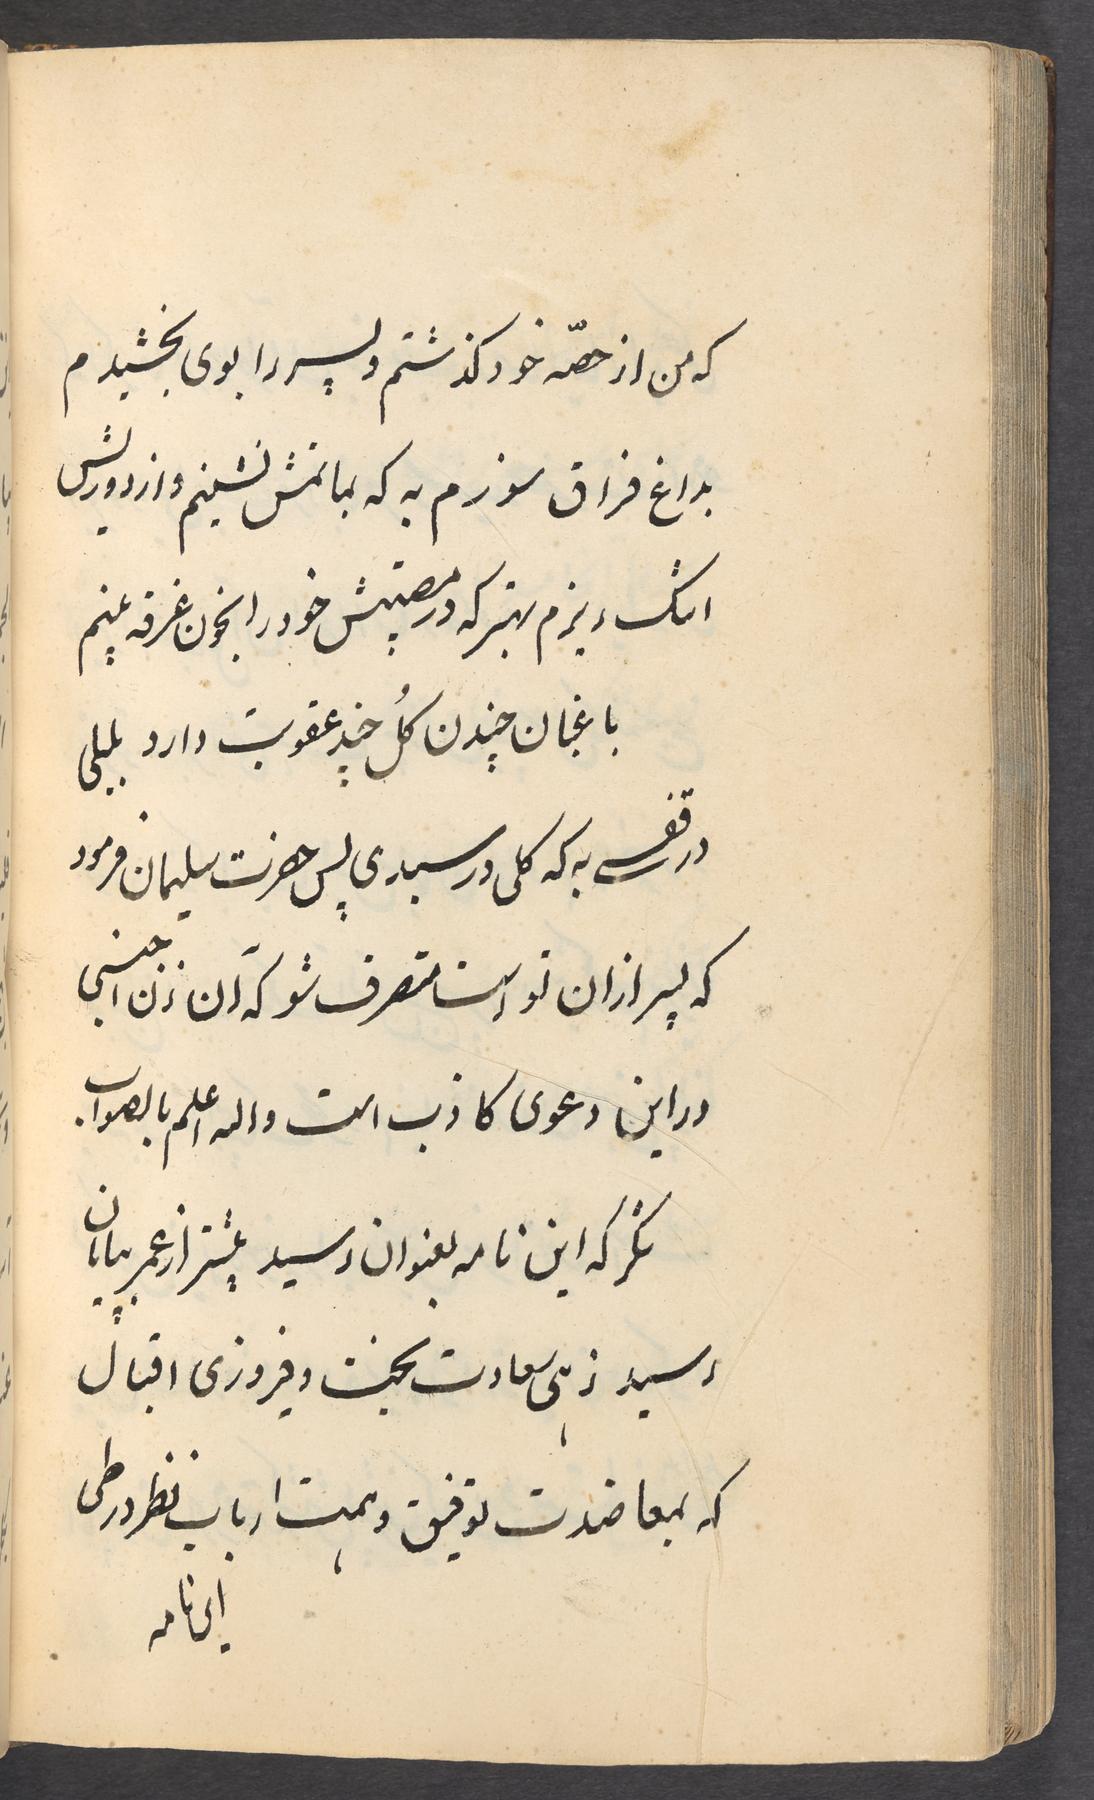 که من از حصّه خود کذشتم و پسر را بوی بخشیدم
بداغ فراق سوزم به که بماتمش نشینم و از دوریش
اشک ریزم بهتر که در مصیبتش خود را بخون غرقه بینم
باغبان چیدن کُل چند عقوبت دارد بلبلی
در قفسی به که کلی در سبدی پس حضرت سلیمان فرمود
که پسر از ان تو است متصرف شو که آن زن اجنبی
در این دعوی کاذب است والله اعلم بالصواب
شکر که این نامه بعنوان رسید پیشتر از عمر بپایان
رسید زهی سعادت بخت و فیروزی اقبال
که بمعاضدت توفیق و همت ارباب نظر در طی
این نامه